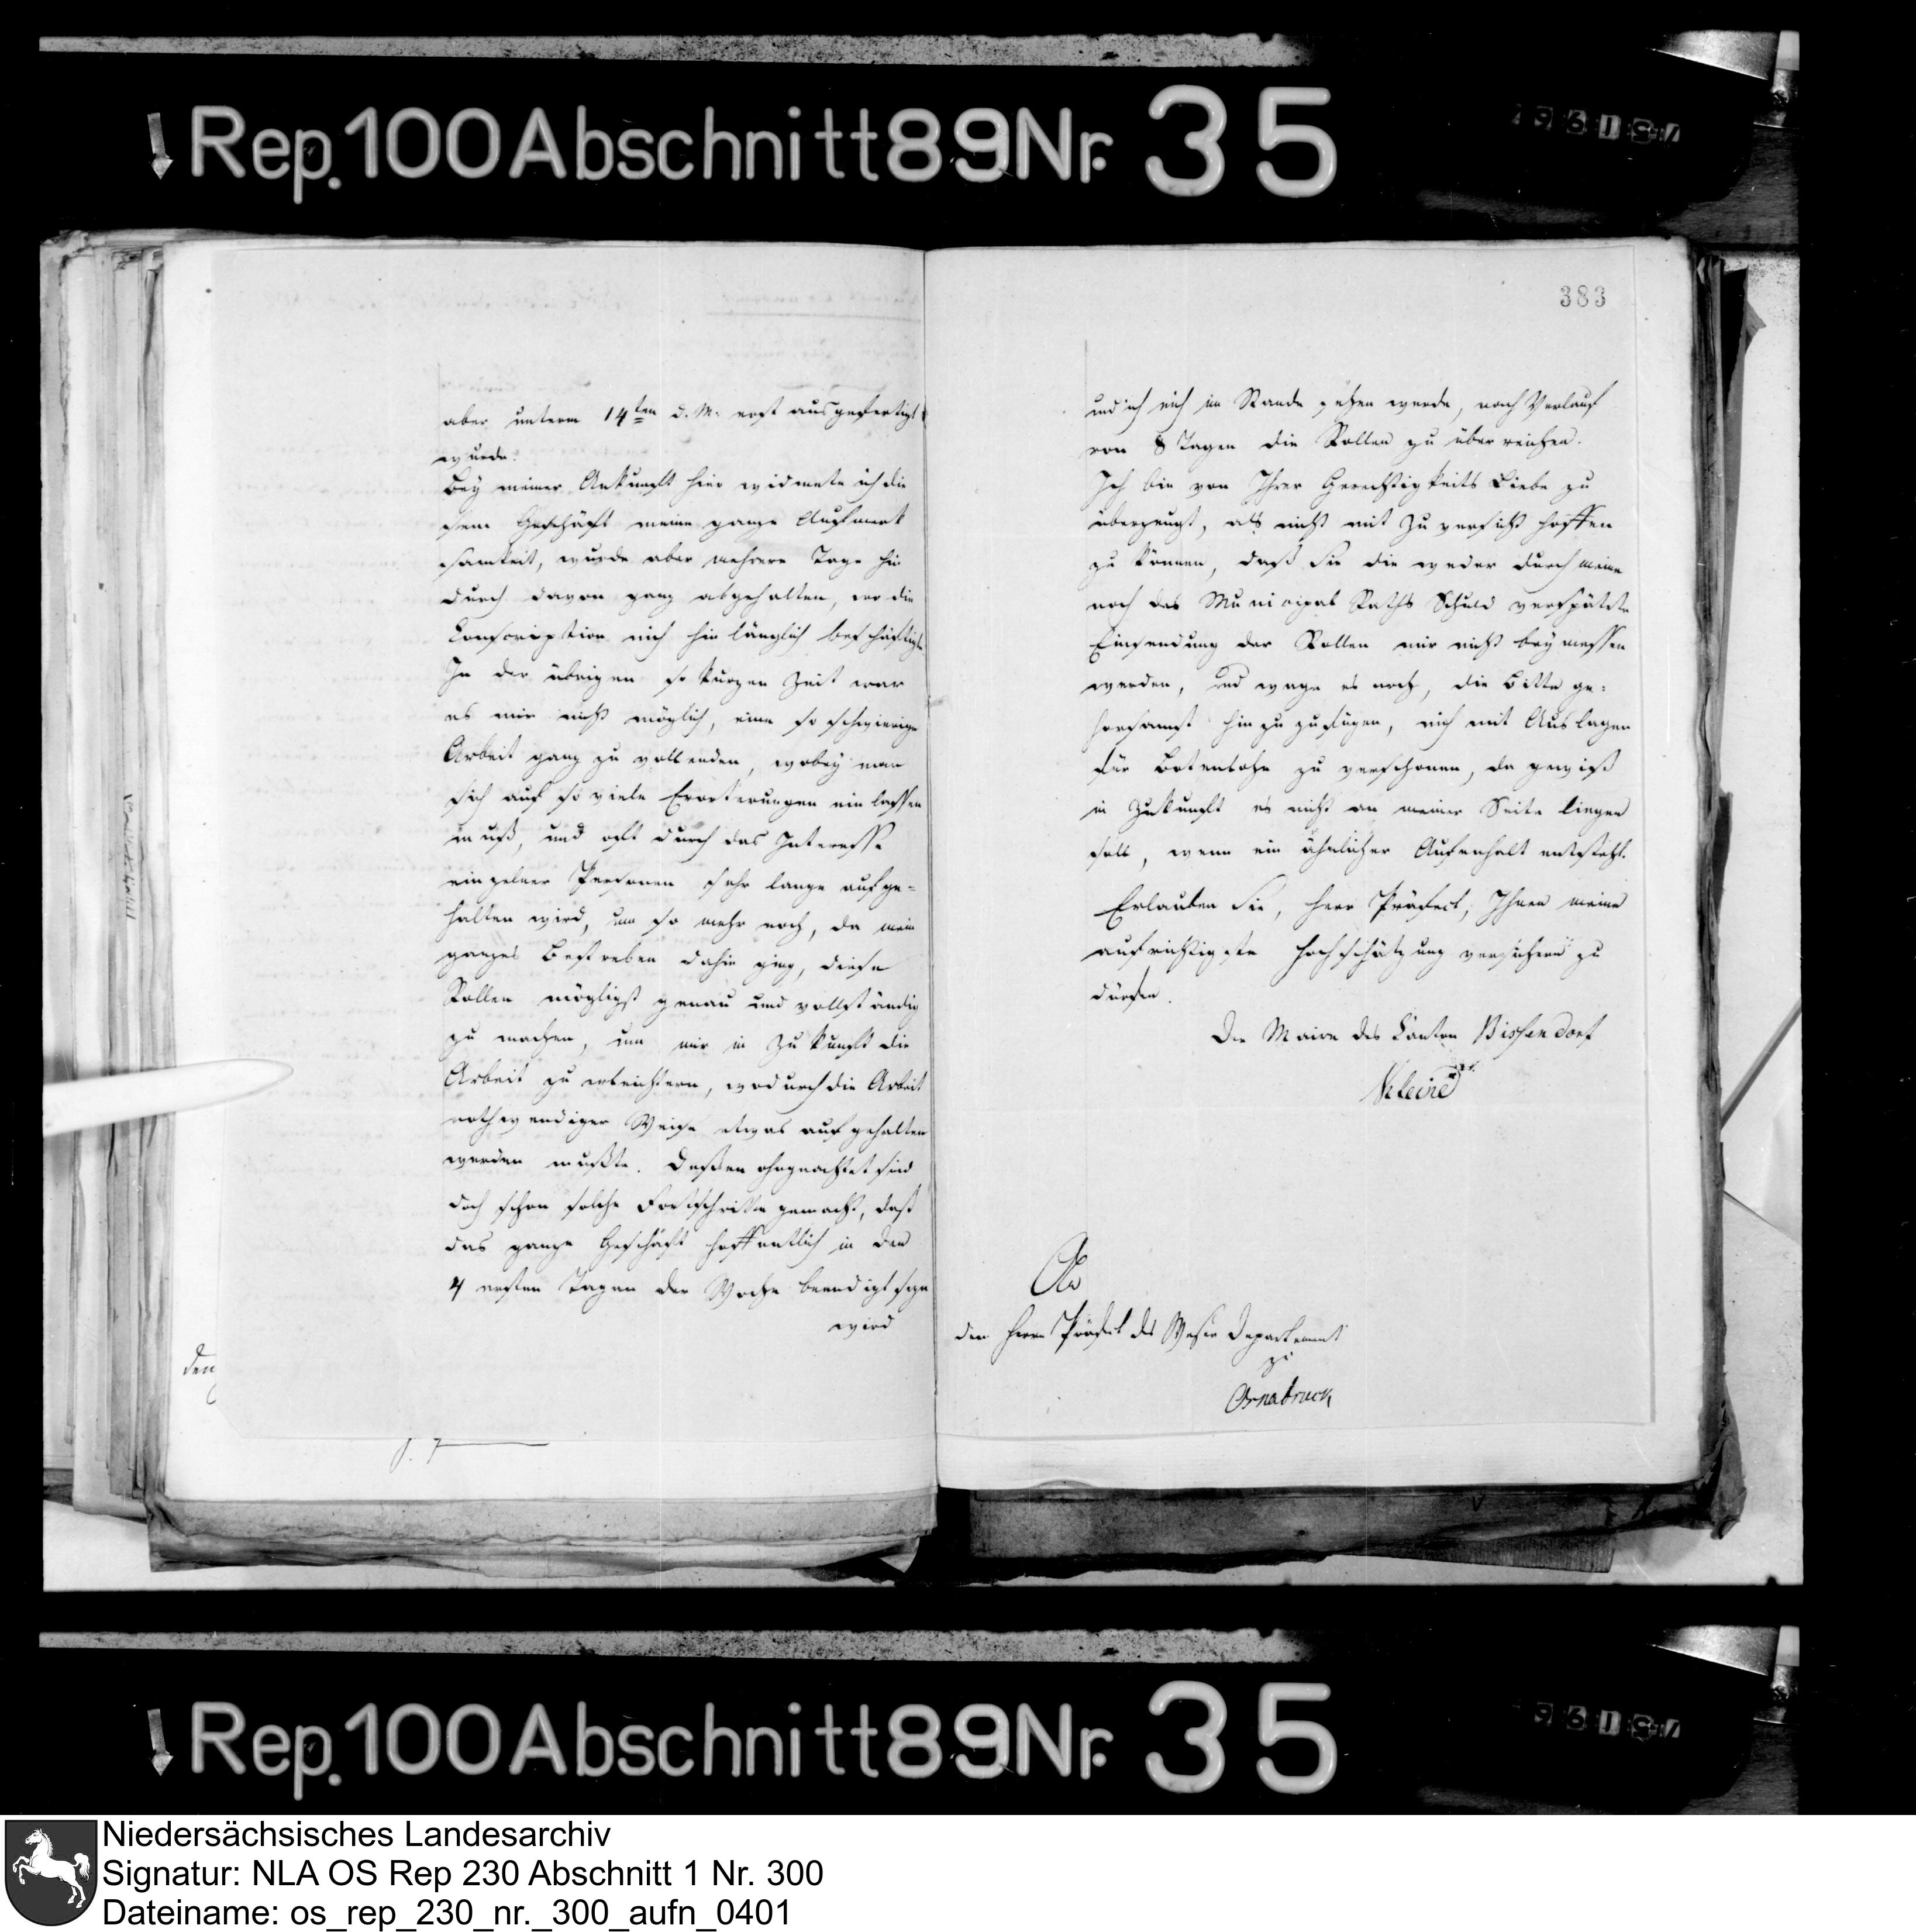 Rep. 100 Abschnitt 89 Nr. 35
aber unterm 14ten d. M. erst ausgefertigt
wurde.
Bey meiner Ankunft hier widmete ich die
sem Geschäft meine ganze Aufmerk
samkeit, wurde aber mehrere Tage hin
durch davon ganz abgehalten, wo die
Conscription mich hinlänglich beschäftigte
In der übrigen so kurzen Zeit war
es mir nicht möglich, eine so schwierige
Arbeit ganz zu vollenden, wobey man
sich auf so viele Erörterungen einlassen
muß, und oft durch das Interesse
einzelner Personen sehr lange aufge-
halten wird, um so mehr noch, da mein
ganzes Bestreben dahin ging, diese
Rollen mögligst genau und vollständig
zu machen, um mir in Zukunft die
Arbeit zu erleichtern, wodurch die Arbeit
nothwendiger Weise etwas aufgehalten
werden mußte. Deßen ohngeachtet sind
doch schon solche Fortschritte gemacht, daß
das ganze Geschäft hoffentlich in den
4 ersten Tagen der Woche beendigt seyn
wird
den
383
und ich mich im Stande sehen werde, nach Verlauf
von 8 Tagen die Rollen zu überreichen.
Ich bin von Ihrer Gerechtigkeits Liebe zu
überzeugt, als nicht mit Zuversicht hoffen
zu können, daß Sie die weder durch meine
noch des Municipal Raths Schuld verspätete
Einsendung der Rollen mir nicht beymessen
werden, und wage es noch, die Bitte ge-
horsamst hinzuzufügen, mich mit Auslagen
für Botenlohn zu verschonen, da gewiß
in Zukunft es nicht an meiner Seite liegen
soll, wenn ein ähnlicher Aufenhalt entsteht.
Erlauben Sie, Herr Präfect, Ihnen meine
aufrichtigste Hochschätzung versichern zu
dürfen.
Der Maire des Canton Bissendorf
Kleine
An
den Herrn Präfect des Weser Departement
zu
Osnabruck
Rep. 100 Abschnitt 89 Nr. 35
Niedersächsisches Landesarchiv
Signatur: NLA OS Rep 230 Abschnitt 1 Nr. 300
Dateiname: os_rep_230_nr._300_aufn_0401